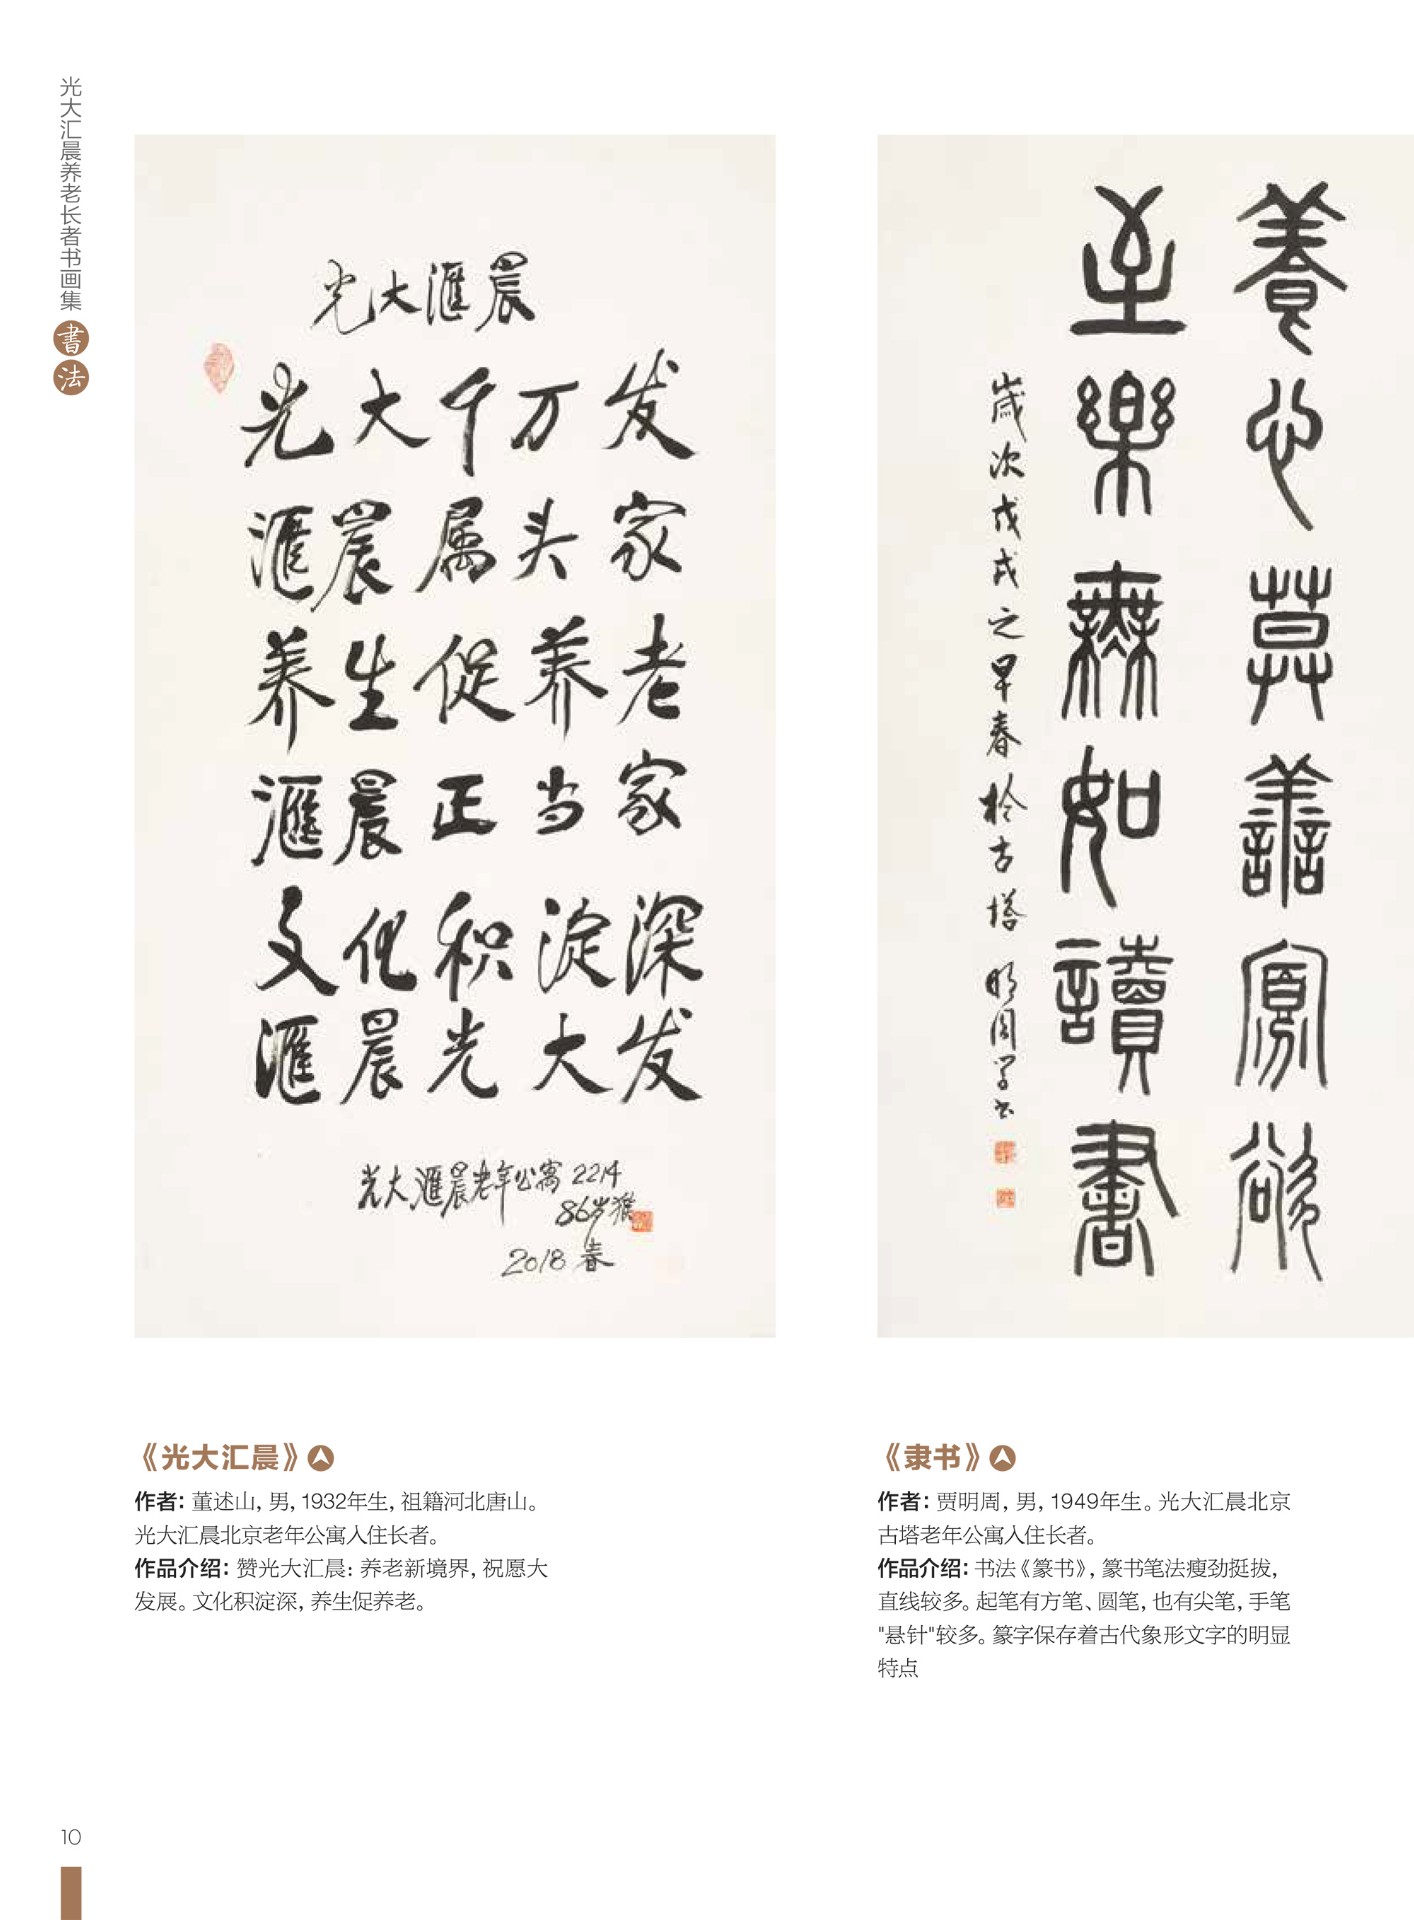 光大汇晨养老长者书画集
書法
光大滙晨
光大千万发
滙晨属头家
养生促养老
滙晨正当家
文化积淀深
滙晨光大发
光大滙晨老年公寓2214
86岁
2018春
養心莫善寡欲
至樂無如讀書
歲次戊戌之早春於古塔 明周学书
《光大汇晨》
作者：董述山，男，1932年生，祖籍河北唐山。
光大汇晨北京老年公寓入住长者。
作品介绍：赞光大汇晨：养老新境界，祝愿大
发展。文化积淀深，养生促养老。
《隶书》
作者：贾明周，男，1949年生。光大汇晨北京
古塔老年公寓入住长者。
作品介绍：书法《篆书》，篆书笔法瘦劲挺拔，
直线较多。起笔有方笔、圆笔，也有尖笔，手笔
"悬针"较多。篆字保存着古代象形文字的明显
特点
10